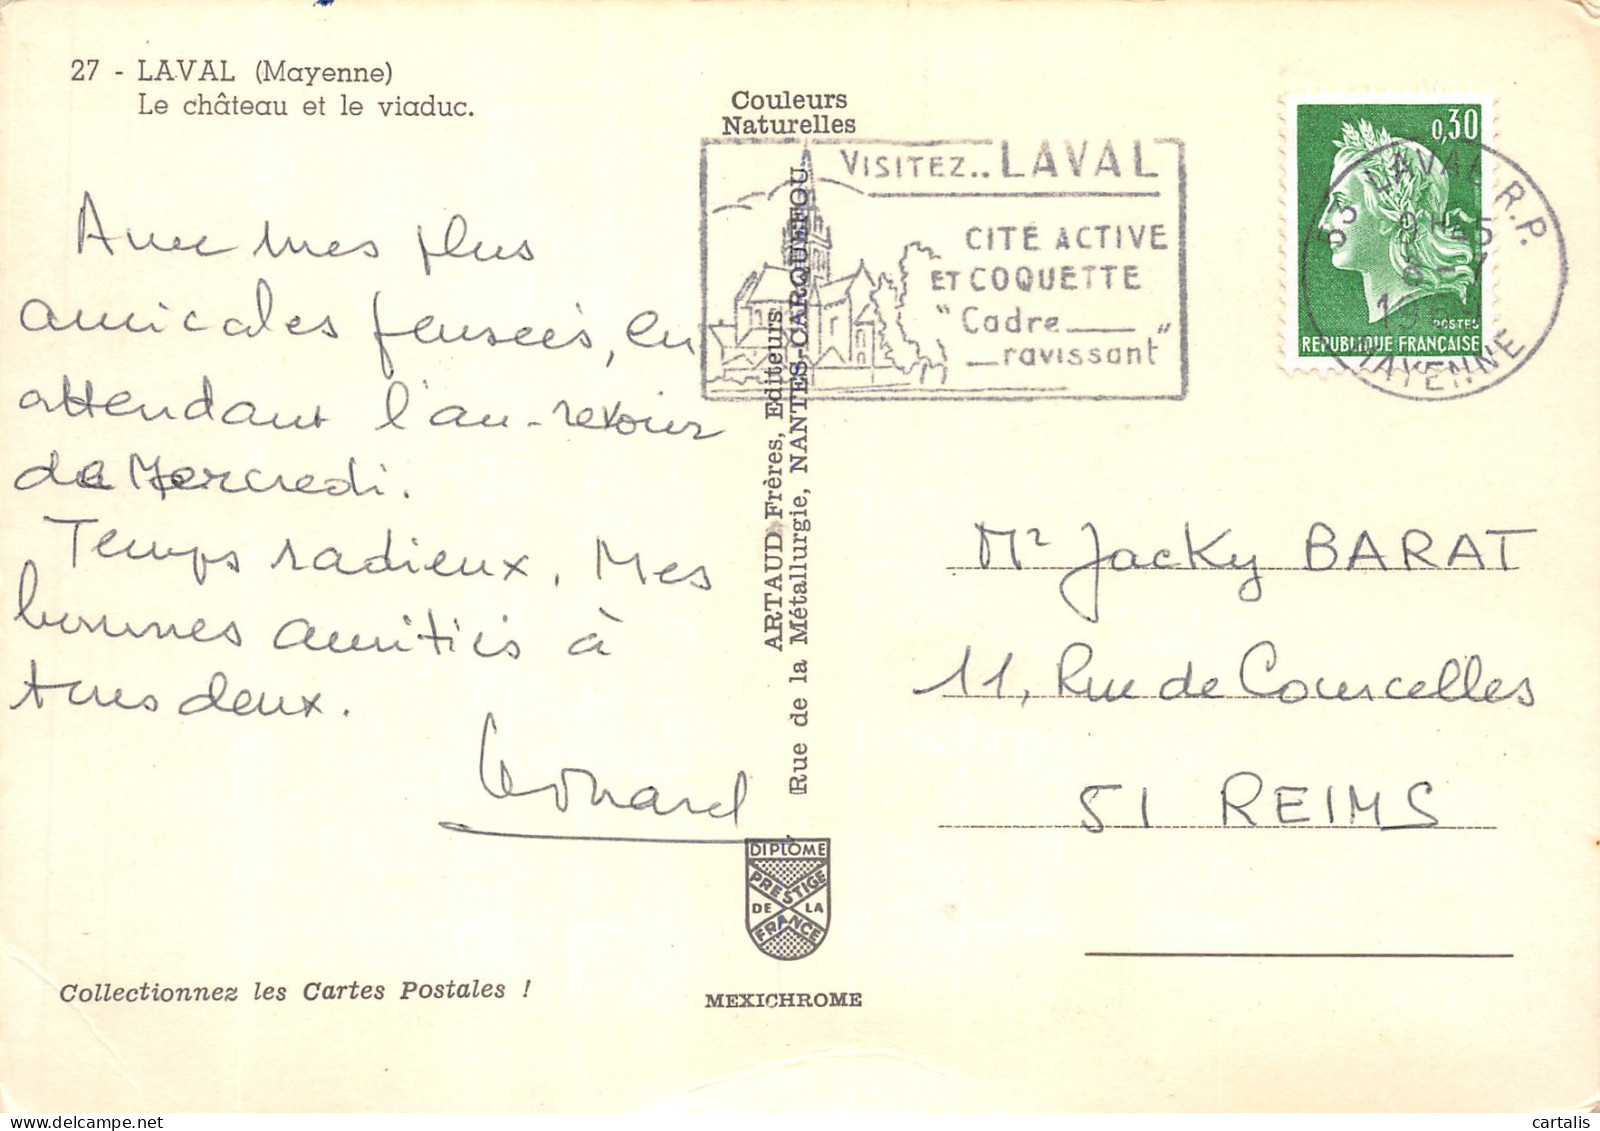 27 - LAVAL (Mayenne)
Le château et le viaduc.
Avec mes plus
amicales pensées, en
attendant l'au-revoir
de Mercredi.
Temps radieux. Mes
bonnes amitiés à
tous deux.
Leonard
Collectionnez les Cartes Postales !
Couleurs
Naturelles
ARTAUD Frères, Editeurs
Rue de la Métallurgie, NANTES-CARQUEFOU
DIPLOME
PRESTIGE
DE LA
FRANCE
MEXICHROME
VISITEZ.. LAVAL
CITÉ ACTIVE
ET COQUETTE
"Cadre
ravissant"
0,30
POSTES
REPUBLIQUE FRANÇAISE
53 LAVAL R.P.
9H45
MAYENNE
Mr Jacky BARAT
11, Rue de Courcelles
51 REIMS
cartalis